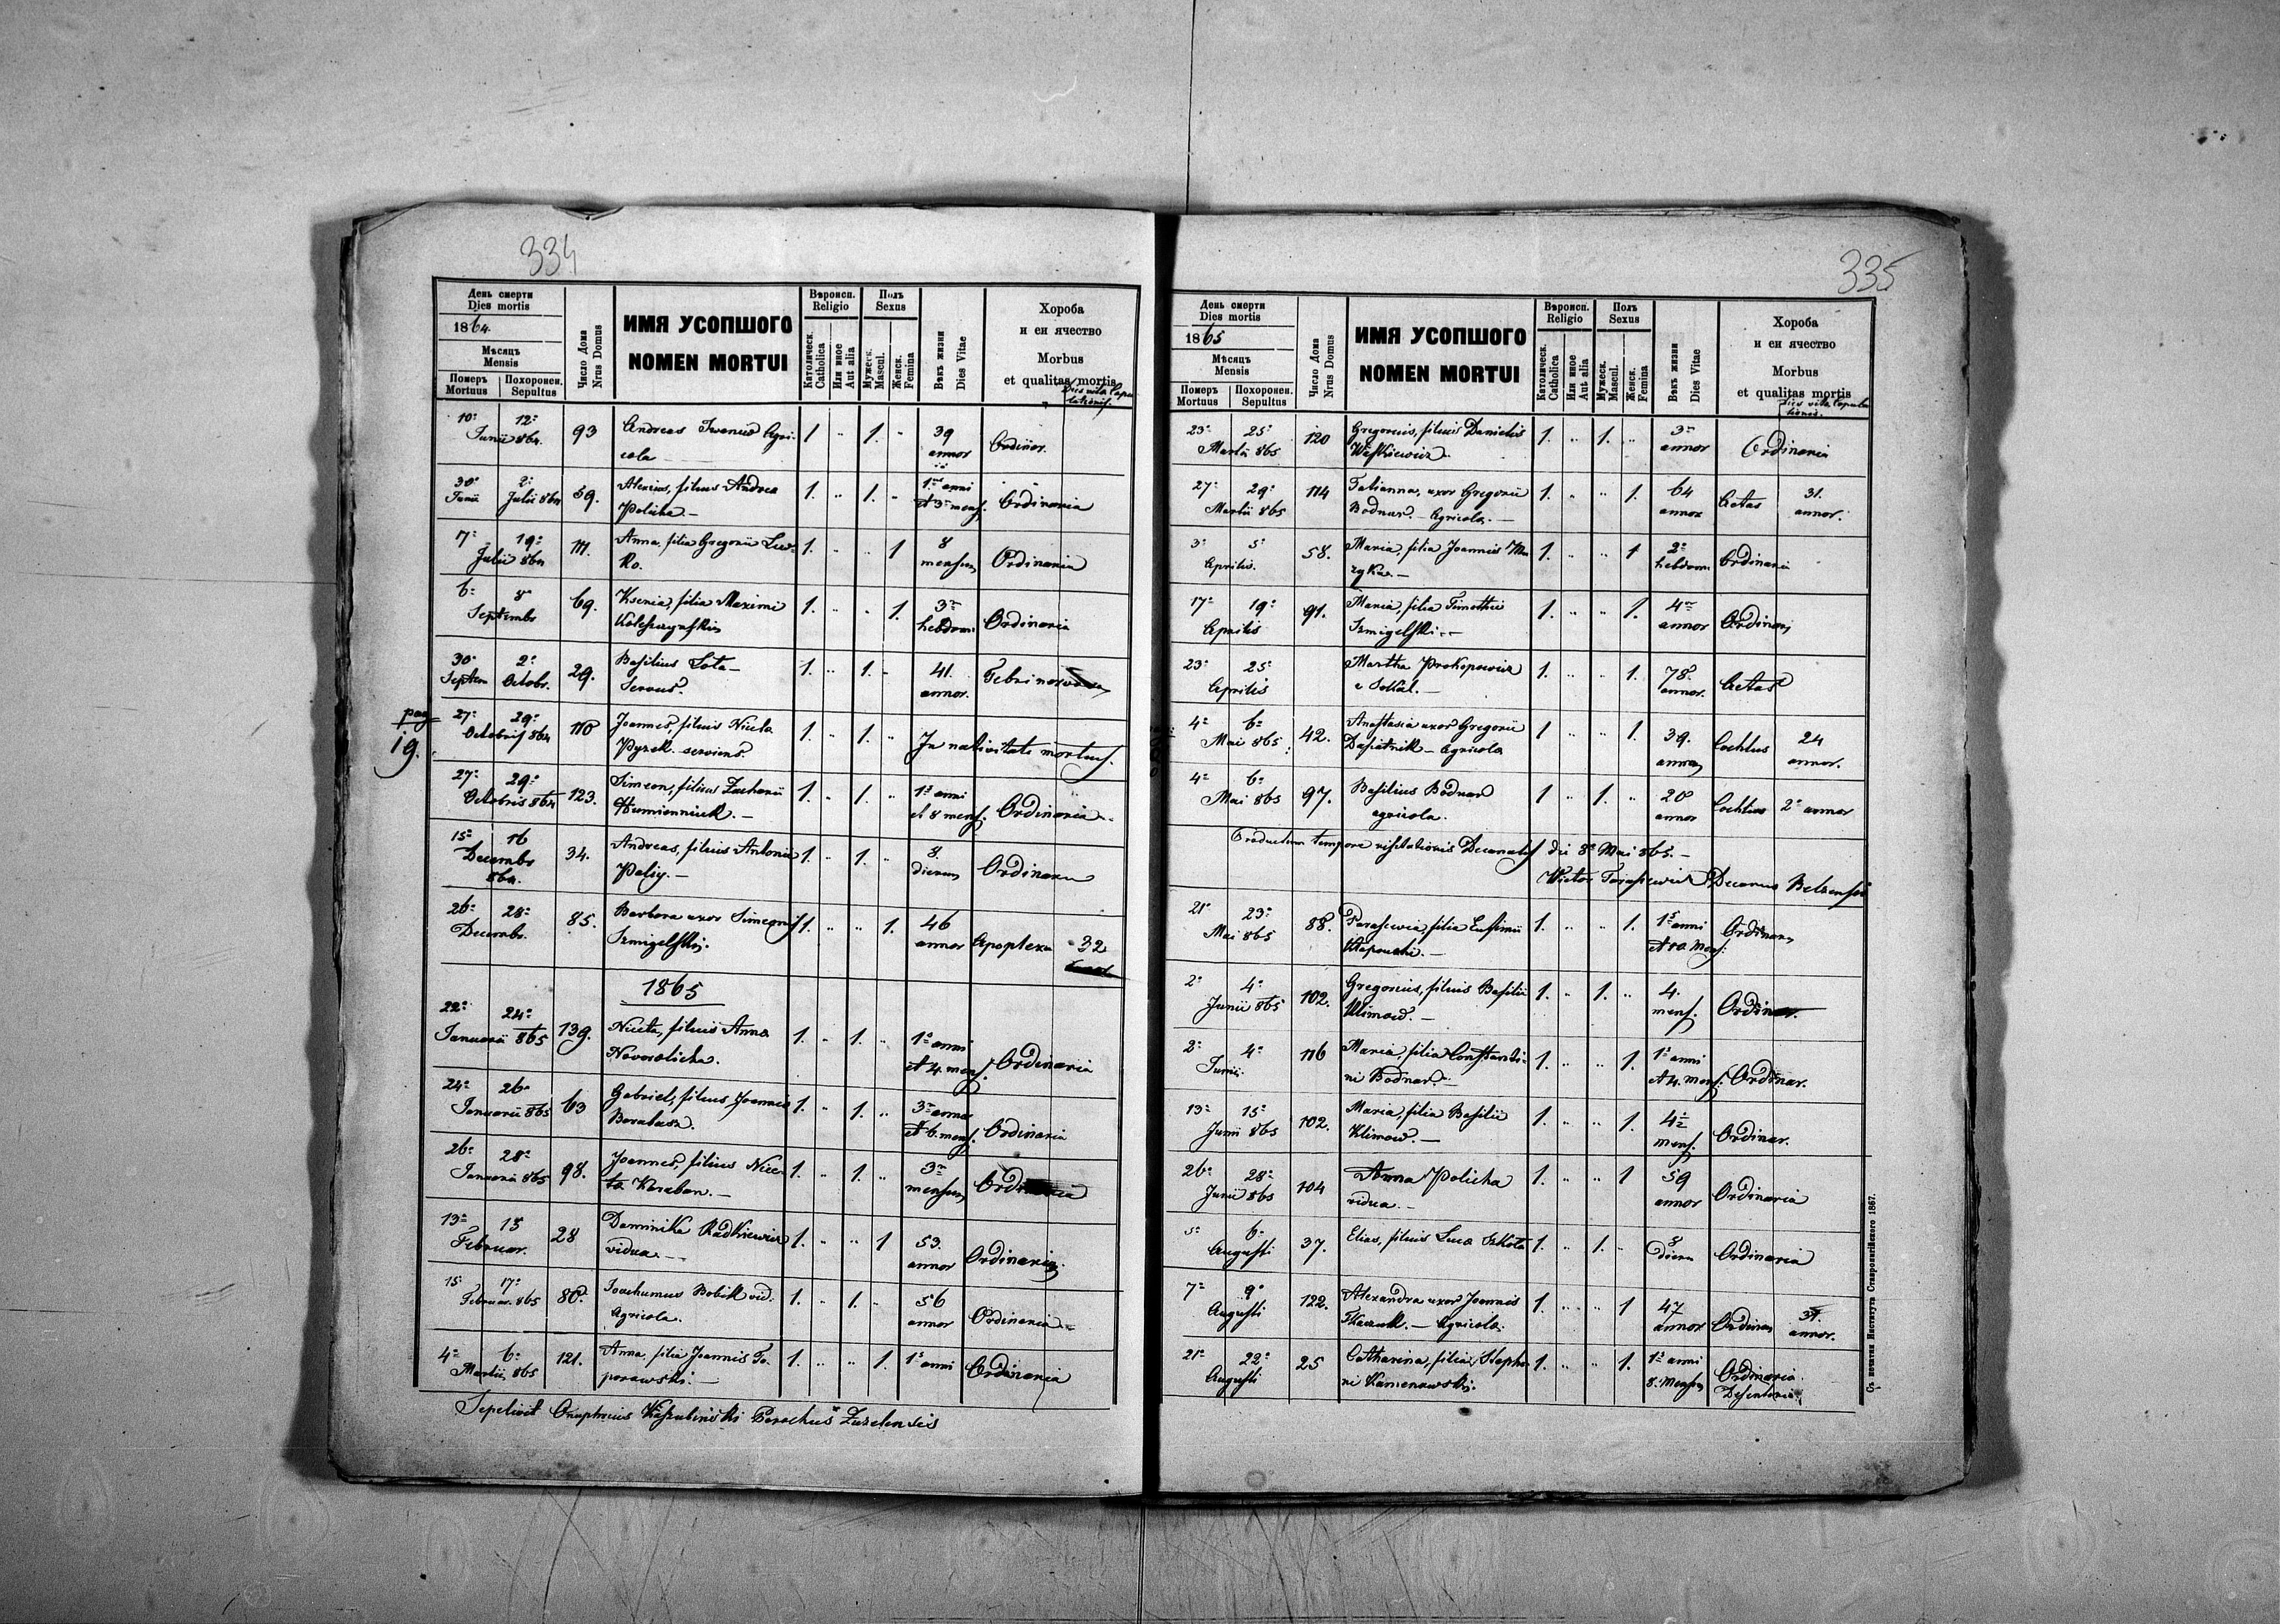 334
День смерти
Dies mortis
1864
Мѣсяць
Mensis
Померъ Похоронен.
Mortuus Sepultus
Число Дома
Nrus Domus
ИМЯ УСОПШОГО
NOMEN MORTUI
Вѣроисп.
Religio
Католическ.
Catholica
Или иное
Aut alia
Полъ
Sexus
Мужеск.
Mascul.
Женск.
Femina
Вѣкъ жизни
Dies Vitae
Хороба
и еи ячество
Morbus
et qualitas mortis
10 12 93 Andreas Iwanus Agri- 1 1. 39 Ordinar.
Junii 864 cola annor
30 2 59. Alexius, filius Andrea 1. 1. 1 anni Ordinaria
Junii Julii 864 Policha.— et 3 mens.
17 19 111. Anna, filia Gregorii Lew- 1. 1 8 Ordinaria
Julii 864 ko. mensum
6 8 69. Ksenia, filia Maximi 1. 1. 3 Ordinaria
Septembr hebdom.
30 2 29. Basilius Lota— 1. 1. 41.
Septem Octobr. Servus. annor.
pag
19.
27 29 110 Joannes, filius Niceta 1. 1. In nativitate mortus.
Octobris 864 Pyzek. serviens.
27 29 123. Simeon, filius Zacharii 1. 1. 1 anni Ordinaria
Octobris 864 Humienniuk.— et 8 mens.
15 16 34. Andreas, filius Antonii 1. 1. 8. Ordinaria
Decembr 864. Paliy.— dierum
26 28 85. Barbara uxor Simeonis 1. 1. 46 Apoplexia 32
Decembr. Szmigelski. annor
1865
22 24 139. Niceta, filius Anna 1. 1. 1 anni Ordinaria
Januarii 865 Noworolicha. et 4 mens.
24 26 63 Gabriel, filius Joannis 1. 1. 3 annor Ordinaria
Januarii 865 Barabasz. et 6 mens.
26 28 98. Joannes, filius Nice- 1. 1. 3 Ordinaria
Januarii 865 ta Karaban.— mensum
13 15 28 Dominika Radkiewicz 1. 1 53. Ordinaria
Februar. vidua— annor
15 17 80. Joachimus Bobik vid. 1. 1. 56 Ordinaria
Februar. 865 Agricola. annor
4 6 121. Anna, filia Joannis To- 1. 1. 1 anni Ordinaria
Martii 865 porowski.—
Sepelivit Onuphrius Kaszubinski Parochus Zuzelensis
335
День смерти
Dies mortis
1865
Мѣсяць
Mensis
Померъ Похоронен.
Mortuus Sepultus
Число Дома
Nrus Domus
ИМЯ УСОПШОГО
NOMEN MORTUI
Вѣроисп.
Religio
Католическ.
Catholica
Или иное
Aut alia
Полъ
Sexus
Мужеск.
Mascul.
Женск.
Femina
Вѣкъ жизни
Dies Vitae
Хороба
и еи ячество
Morbus
et qualitas mortis
23 25 120 Gregorius, filius Danielis 1. 1. 3 Ordinaria
Martii 865 Waskiewicz. annor
27 29 114 Tatianna, uxor Gregorii 1. 1. 64 Aetas 31.
Martii 865 Bodnar.— Agricola.— annor annor.
3 5 58. Maria, filia Joannis Mu- 1. 1 2 Ordinaria
Aprilis. zyka.— hebdom.
17 19 91. Maria, filia Timothei 1. 1. 4 Ordinar
Aprilis Szmigelski.— annor
23 25 Martha Prokopowicz 1. 1. 78. Aetas
Aprilis e Sokal.— annor.
4 6 42. Anastasia uxor Gregorii 1 1. 39. 24
Mai 865 Dasiatnik— Agricola annor annor.
4 6 97. Basilius Bodnar 1 1. 20 2 annor
Mai 865 agricola. annor
Productum tempore visitationis Decanalis die 8 Mai 865.—
Wictor Tarasiewicz Decanus Belzensis
21 23 88. Parascewia, filia Eufimii 1. 1. 1 anni Ordinar
Mai 865 et 10 Mens.
2 4 102. Gregorius, filius Basilii 1. 1. 4. Ordinar.
Junii 865 Klimow.— mens.
2 4 116 Maria, filia Constanti- 1. 1. 1 anni Ordinar.
Junii ni Bodnar.— et 4. mens.
13 15 102. Maria, filia Basilii 1. 1. 4 Ordinar.
Junii 865 Klimow.— mens.
26 28 104 Anna Policha 1. 1 59 Ordinaria
Junii 865 vidua— annor
5 6 37. Elias, filius Luca Szkola 1. 1. 8 Ordinaria
Augusti dierum
7 9 122. Alexandra uxor Joannis 1. 1 47 Ordinar 31.
Augusti Tkaczuk.— Agricola. annor annor.
21 22 25 Catharina, filia Stepha- 1. 1. 1 anni Ordinaria
Augusti ni Kamenowski. 8. Mensum Desentaria
Съ печатни Института Ставропигійского 1867.